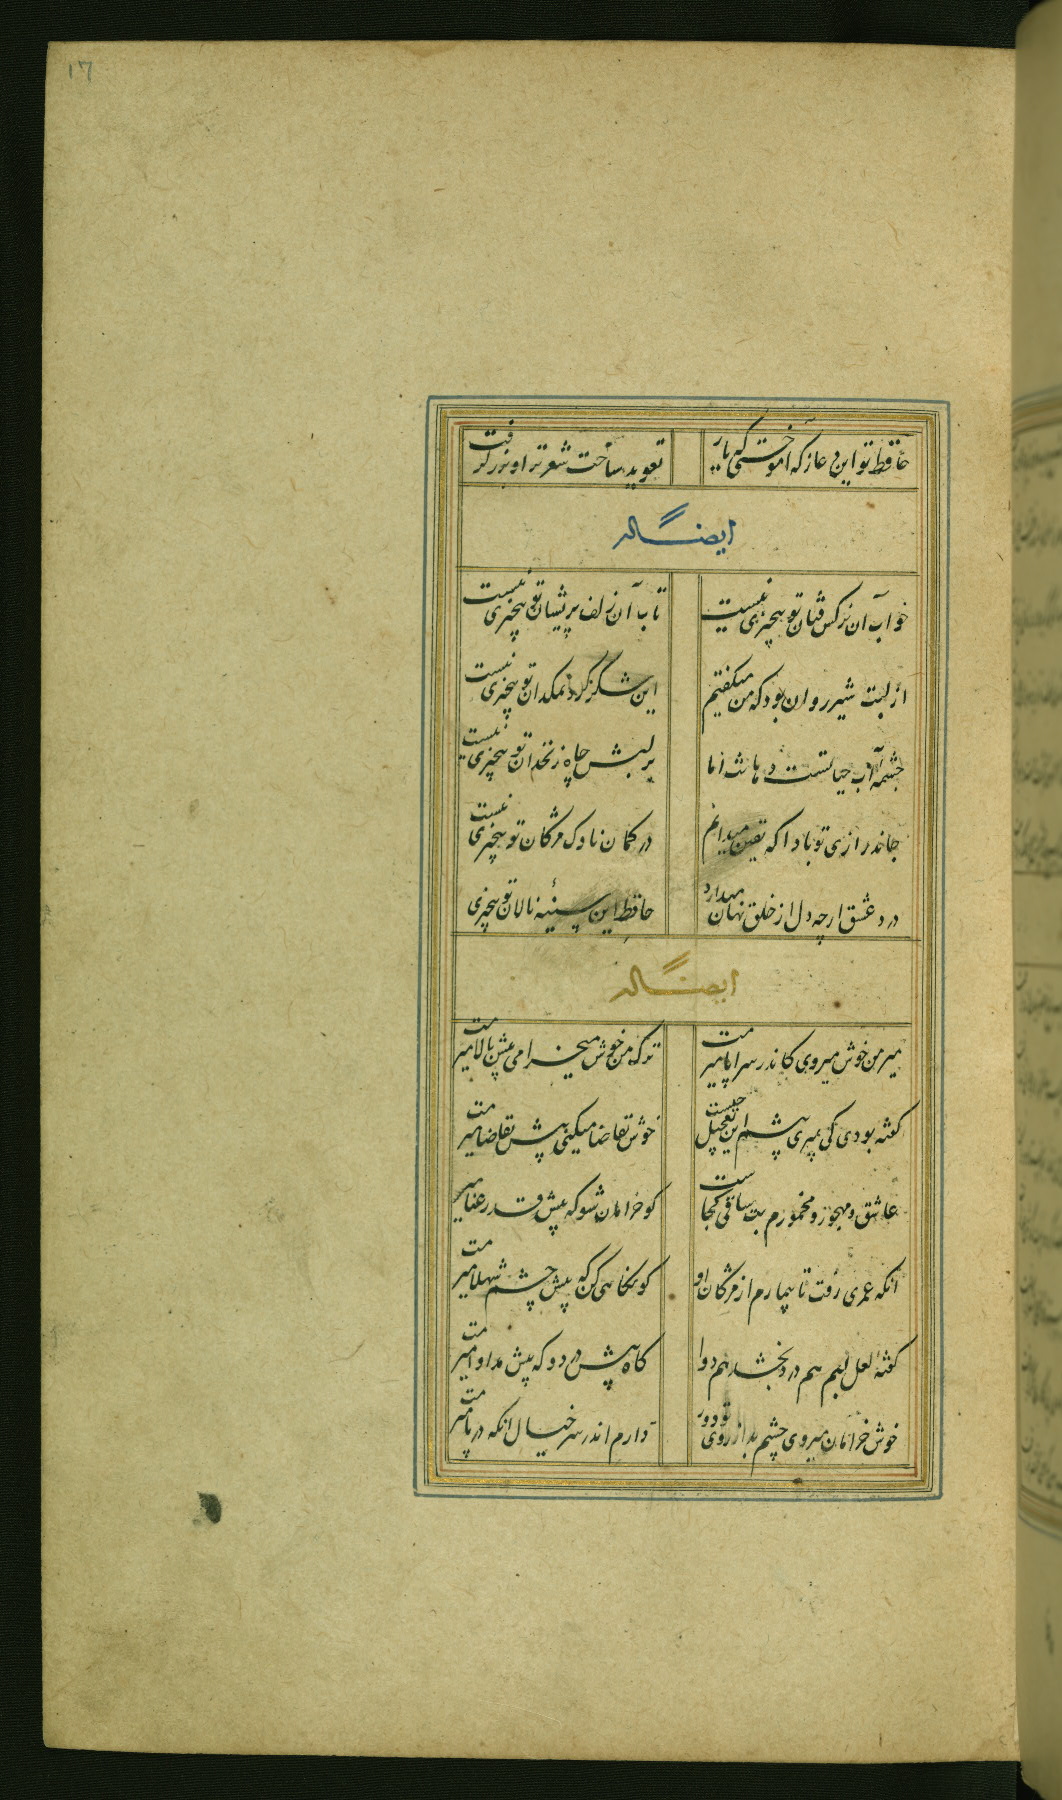 ۱۷
حافظ تو این دعا ز که آموختی که یار
تعوید ساخت شعر ترا و بزر گرفت
ایضاً له
خواب آن نرکس فتان تو بیچیزی نیست
تاب آن زلف پریشان تو بیچیزی نیست
از لبت شیر روان بود که من میکفتم
این شکر کرد نمکدان تو بیچیزی نیست
چشمه آب حیاتست دهانت اما
بر لبش چاه زنخدان تو بیچیزی نیست
جاندرازی تو بادا که یقین میدانم
در کمان ناوک مژکان تو بیچیزی نیست
درد عشق ارچه دل از خلق نهان میدارد
حافظ این سینه نالان تو بیچیزی
ایضاً له
میر من خوش میروی کاندر سراپا میرمت
ترک من خوش میخرامی پیش بالا میرمت
کفته بودی کی بمیری پیشم این تعجیل چیست
خوش تقاضا میکنی پیش تقاضا میرمت
عاشق و مهجور و مخمورم بت ساقی کجاست
کو خرامان شو که پیش قد رعنا میرمت
آنکه عمری رفت تا بیمارم از مژکان او
کو نکاهی کن که پیش چشم شهلا میرمت
کفته لعل لبم هم درد بخشد هم دوا
کاه پیش درد و که پیش مداوا میرمت
خوش خرامان میروی چشم بد از روی تو دور
دارم اندر سر خیال انکه در پا میرمت